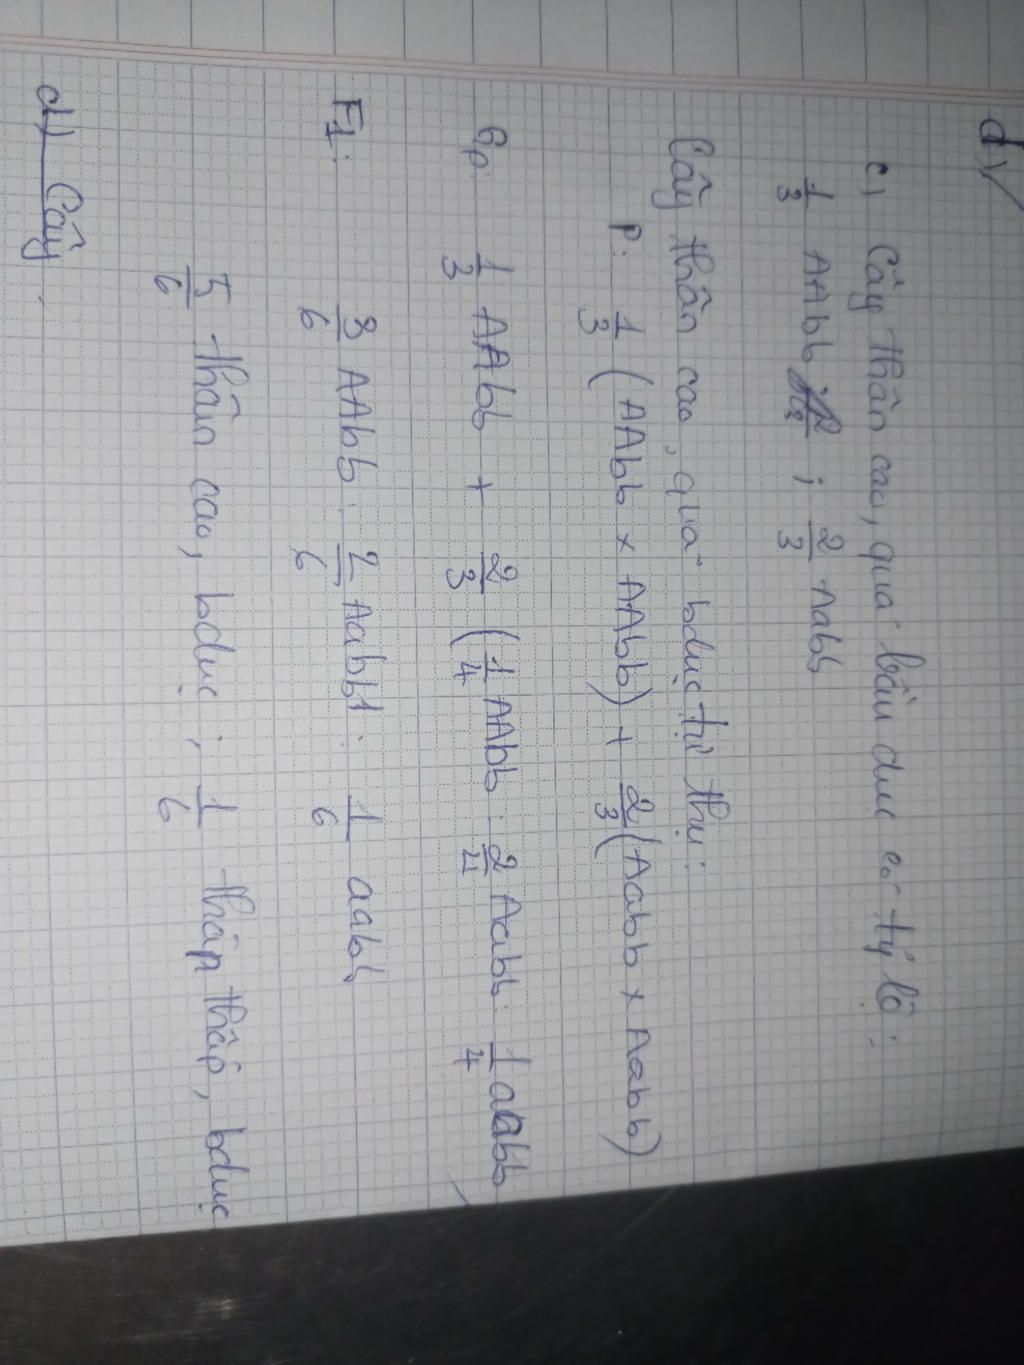 d)
c) Cây thân cao, quả bầu dục có tỷ lệ:
1/3 AAbb ; 2/3 Aabb
Cây thân cao, quả bdục tự thụ:
P: 1/3 (AAbb x AAbb) + 2/3 (Aabb x Aabb)
Gp: 1/3 AAbb + 2/3 (1/4 AAbb : 2/4 Aabb : 1/4 aabb
F1: 3/6 AAbb : 2/6 Aabb : 1/6 aabb
5/6 thân cao, bdục ; 1/6 thâp thấp, bdục
d) Cây